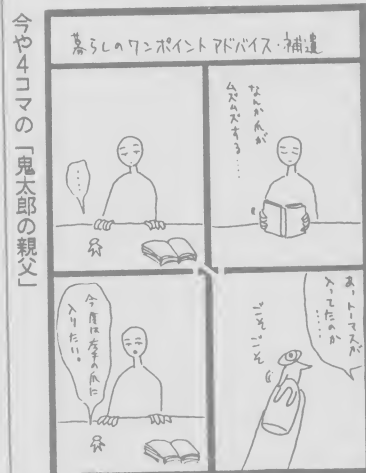 今や4コマの「鬼太郎の親父」
暮らしのワンポイントアドバイス・補遺
なんか爪が
ムズムズする……
あっトーマスが
入ってたのか
……
ごそごそ
……
今度は左手の爪に
入りたい。